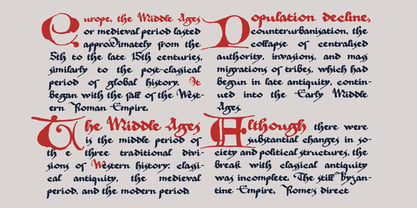 Europe, the Middle Ages
or medieval period lasted
approximately from the
5th to the late 15th centuries,
similarly to the post-classical
period of global history. It
began with the fall of the West-
ern Roman Empire.
Population decline,
counterurbanisation, the
collapse of centralised
authority, invasions, and mass
migrations of tribes, which had
begun in late antiquity, contin-
ued into the Early Middle
Ages.
The Middle Ages
is the middle period of
the three traditional divi-
sions of Western history: classi-
cal antiquity, the medieval
period, and the modern period
Although there were
substantial changes in so-
ciety and political structures, the
break with classical antiquity
was incomplete. The still Byzan-
tine Empire, Rome's direct